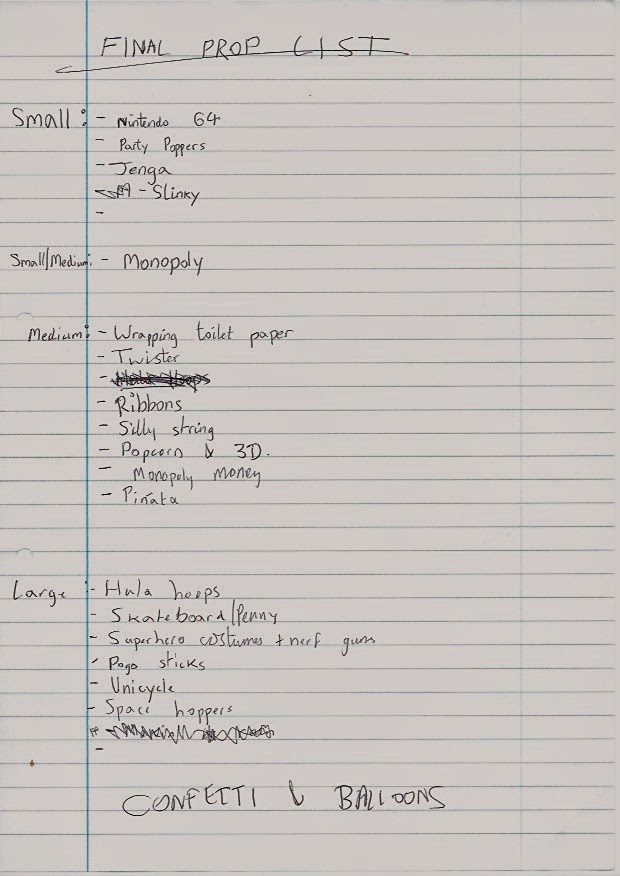 FINAL PROP LIST
Small: - Nintendo 64
- Party Poppers
- Jenga
- Slinky
-
Small/Medium: - Monopoly
Medium: - Wrapping toilet paper
- Twister
- Hula Hoops
- Ribbons
- Silly string
- Popcorn & 3D.
- Monopoly money
- Piñata
Large: - Hula hoops
- Skateboard/Penny
- Superhero costumes + nerf guns
- Pogo sticks
- Unicycle
- Space hoppers
-
CONFETTI & BALLOONS